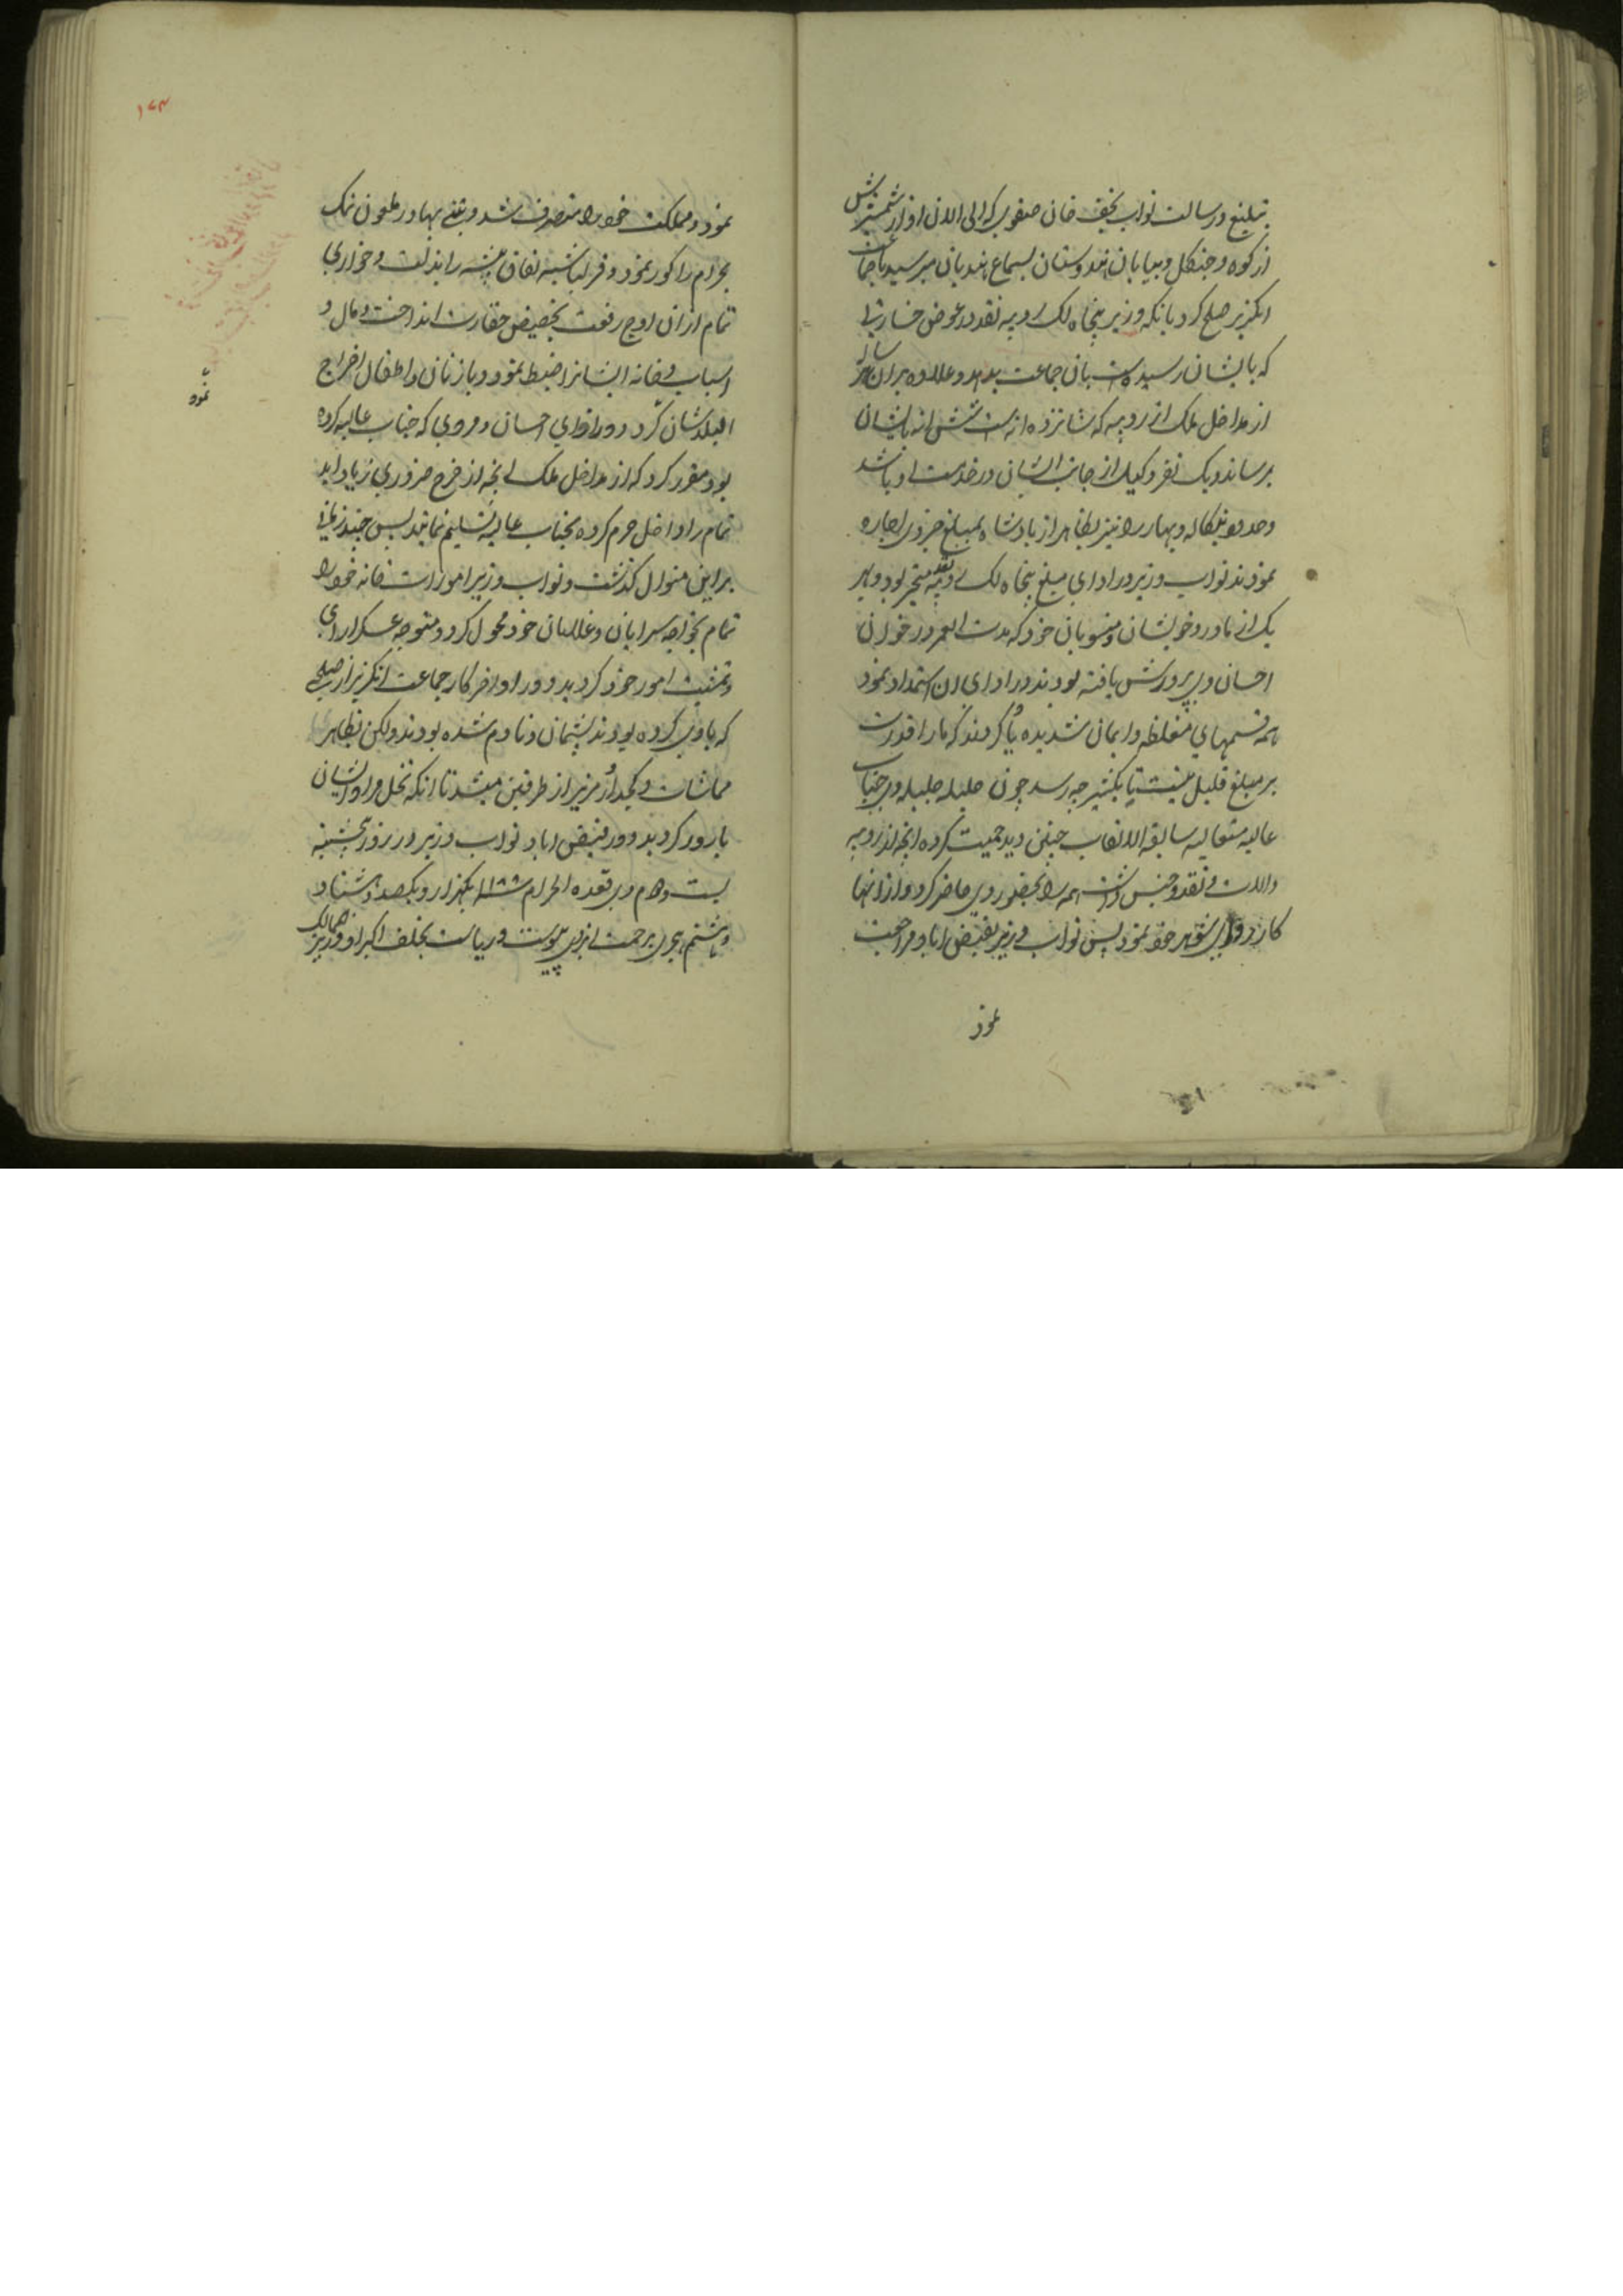 تبلیغ و رسالت نواب نجف خان صفوی که الی الان اواز شمشیرش
از کوه و جنکل و بیابان هندوستان بسماع هندیان میرسید با جماعت
انکریز صلح کرد بانکه وزیر پنجاه لک روپیه نقد در عوض خسارتی
که بایشان رسیده است بان جماعت بدهد و علاوه بران هر ساله
از مداخل ملک از روپیه که شانزده انه است شش انه بایشان
برساند و یک نفر وکیل از جانب ایشان در خدمت او باشد
وحدود بنکاله و بهار را نیز بظاهر از پادشاه بمبلغ جزوی اجاره
نمودند نواب وزیر در ادای مبلغ پنجاه لک روپیه نقد متحیر بود و بهر
یک از مادر و خویشان و منسوبان خود که مدت العمر در خوان
احسان وی پرورش یافته بودند در ادای ان استمداد نمود
همه قسمهای مغلظه و ایمان شدیده یاد کردند که ما را قدرت
بر مبلغ قلیل نیست تا بکثیر چه رسد چون جلیله جلیله وی جناب
عالیه متعالیه سابقه الالقاب چنین دید حمیت کرده انچه از روپیه
والات و نقد و جنس داشت همه را بحضور وی حاضر کرد و از انها
کار روائی شوهر خود نمود پس نواب وزیر بفیض اباد مراجعت
نمود
۱۷۳
نمود و مملکت خود را متصرف شد و بینی بهادر ملعون نمک
بحرام را کور نمود و قزلباشیه نفاق پیشه را بذلت و خواری
تمام از ان اوج رفعت بحضیض حقارت انداخت و مال و
اسباب و خانه ایشانرا ضبط نمود و با زنان و اطفال اخراج
البلدشان کرد و در ازای احسان و مروی که جناب عالیه کرده
بود مقرر کرد که از مداخل ملک انچه از خرج ضروری زیاد اید
تمام را داخل حرم کرده بجناب عالیه تسلیم نمایند پس چند زمانی
براین منوال کذشت و نواب وزیر امورات خانه خود را
تمام بخواجه سرایان و غلامان خود محول کرد و متوجه عسکر ارای
و تمشیت امور خود کردید و در اواخر کار جماعت انکریز از صلحی
که با وی کرده بودند پشیمان و نادم شده بودند ولکن بظاهر
مماشات و کجدار مریز از طرفین میشد تا انکه نخل مراد ایشان
بارور کردید و در فیض اباد نواب وزیر در روز پنجشنبه
بیست و دهم ذی قعده الحرام ۱۱۸۸ یکهزار و یکصد و هشتاد
و هشتم هجری برحمت ایزدی پیوست و ریاست بخلف اکبر او وزیر الممالک